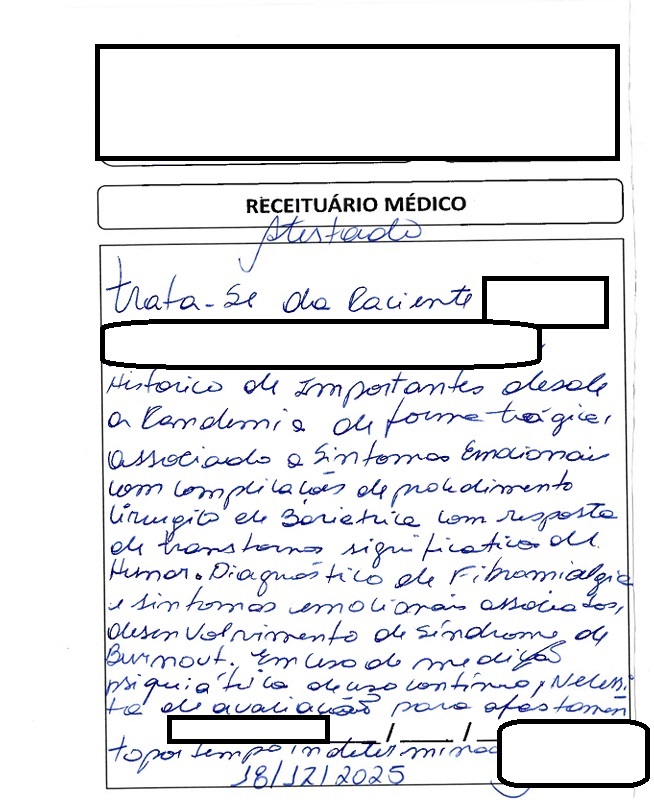 RECEITUÁRIO MÉDICO
Atestado
trata-se da Paciente
Historico de Importantes desde
a Pandemia de forma trágica,
associado a Sintomas Emocionais
com complicações de procedimento
Cirurgico de Bariatrica com resposta
de transtorno significativo de
Humor. Diagnóstico de Fibromialgia
e sintomas emocionais associados,
desenvolvimento de Síndrome de
Burnout. Em uso de medicação
psiquiátrica de uso contínuo, Necessi
ta de avaliação para afastamen
___/___/
to por tempo indeterminado
18/12/2025